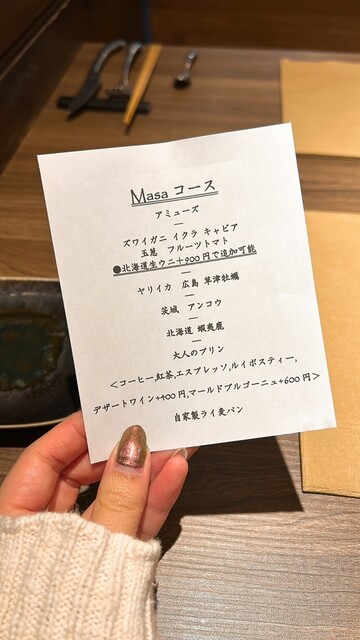 Masa コース
アミューズ
ズワイガニ イクラ キャビア
玉葱 フルーツトマト
●北海道生ウニ＋900円で追加可能
ヤリイカ 広島 草津牡蠣
茨城 アンコウ
北海道 蝦夷鹿
大人のプリン
＜コーヒー,紅茶,エスプレッソ,ルイボスティー,
デザートワイン+400円,マールドブルゴーニュ+600円＞
自家製ライ麦パン